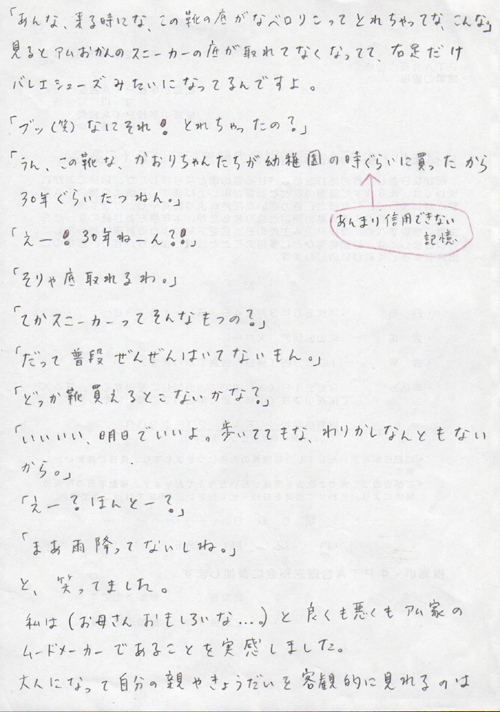 「あんな、来る時にな、この靴の底がなベロリこってとれちゃってな、こんな」
見るとアムおかんのスニーカーの底が取れてなくなってて、右足だけ
バレエシューズみたいになってるんですよ。
「ブッ(笑)なにそれ!とれちゃったの?」
「うん、この靴な、かおりちゃんたちが幼稚園の時ぐらいに買ったから
30年ぐらいたつねん。」
あんまり信用できない
記憶
「えー!30年ねーん?!」
「そりゃ底取れるわ。」
「てかスニーカーってそんなもつの?」
「だって普段ぜんぜんはいてないもん。」
「どっか靴買えるとこないかな?」
「いいいい、明日でいいよ。歩いててきな、わりかしなんともない
から。」
「えー?ほんとー?」
「まあ雨降ってないしね。」
と、笑ってました。
私は(お母さんおもしろいな…。)と良くも悪くもアム家の
ムードメーカーであることを実感しました。
大人になって自分の親やきょうだいを客観的に見れるのは